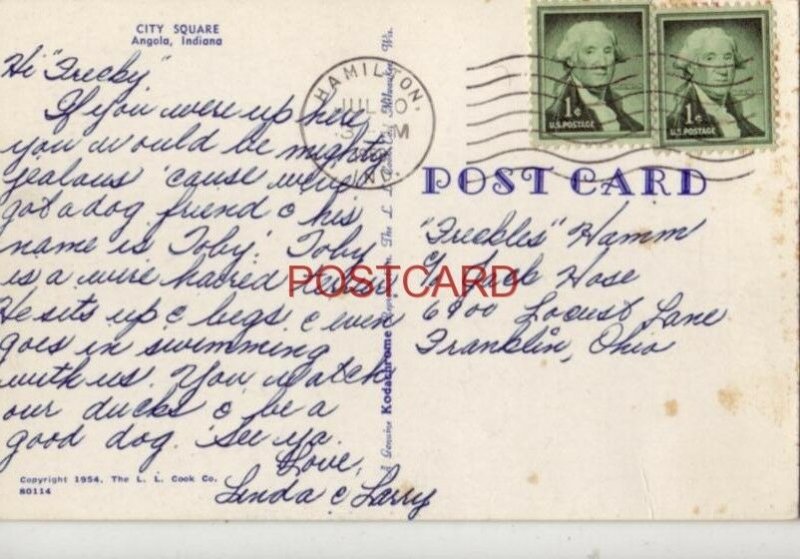 CITY SQUARE
Angola, Indiana
Hi "Frecky"
If you were up here
you would be mighty
jealous 'cause we've
got a dog friend & his
name is 'Toby'. Toby
is a wire haired terrier
He sits up & begs & even
goes in swimming
with us. You watch
our ducks & be a
good dog. See ya.
Love,
Linda & Larry
Copyright 1954, The L. L. Cook Co.
80114
A Genuine Kodachrome The L. L. Cook Co. Milwaukee Wis.
HAMILTON,
JUL
M
IND.
1¢
U.S. POSTAGE
1¢
U.S. POSTAGE
POST CARD
"Freckles" Hamm
c/o Jack Hose
6900 Locust Lane
Franklin, Ohio
POSTCARD